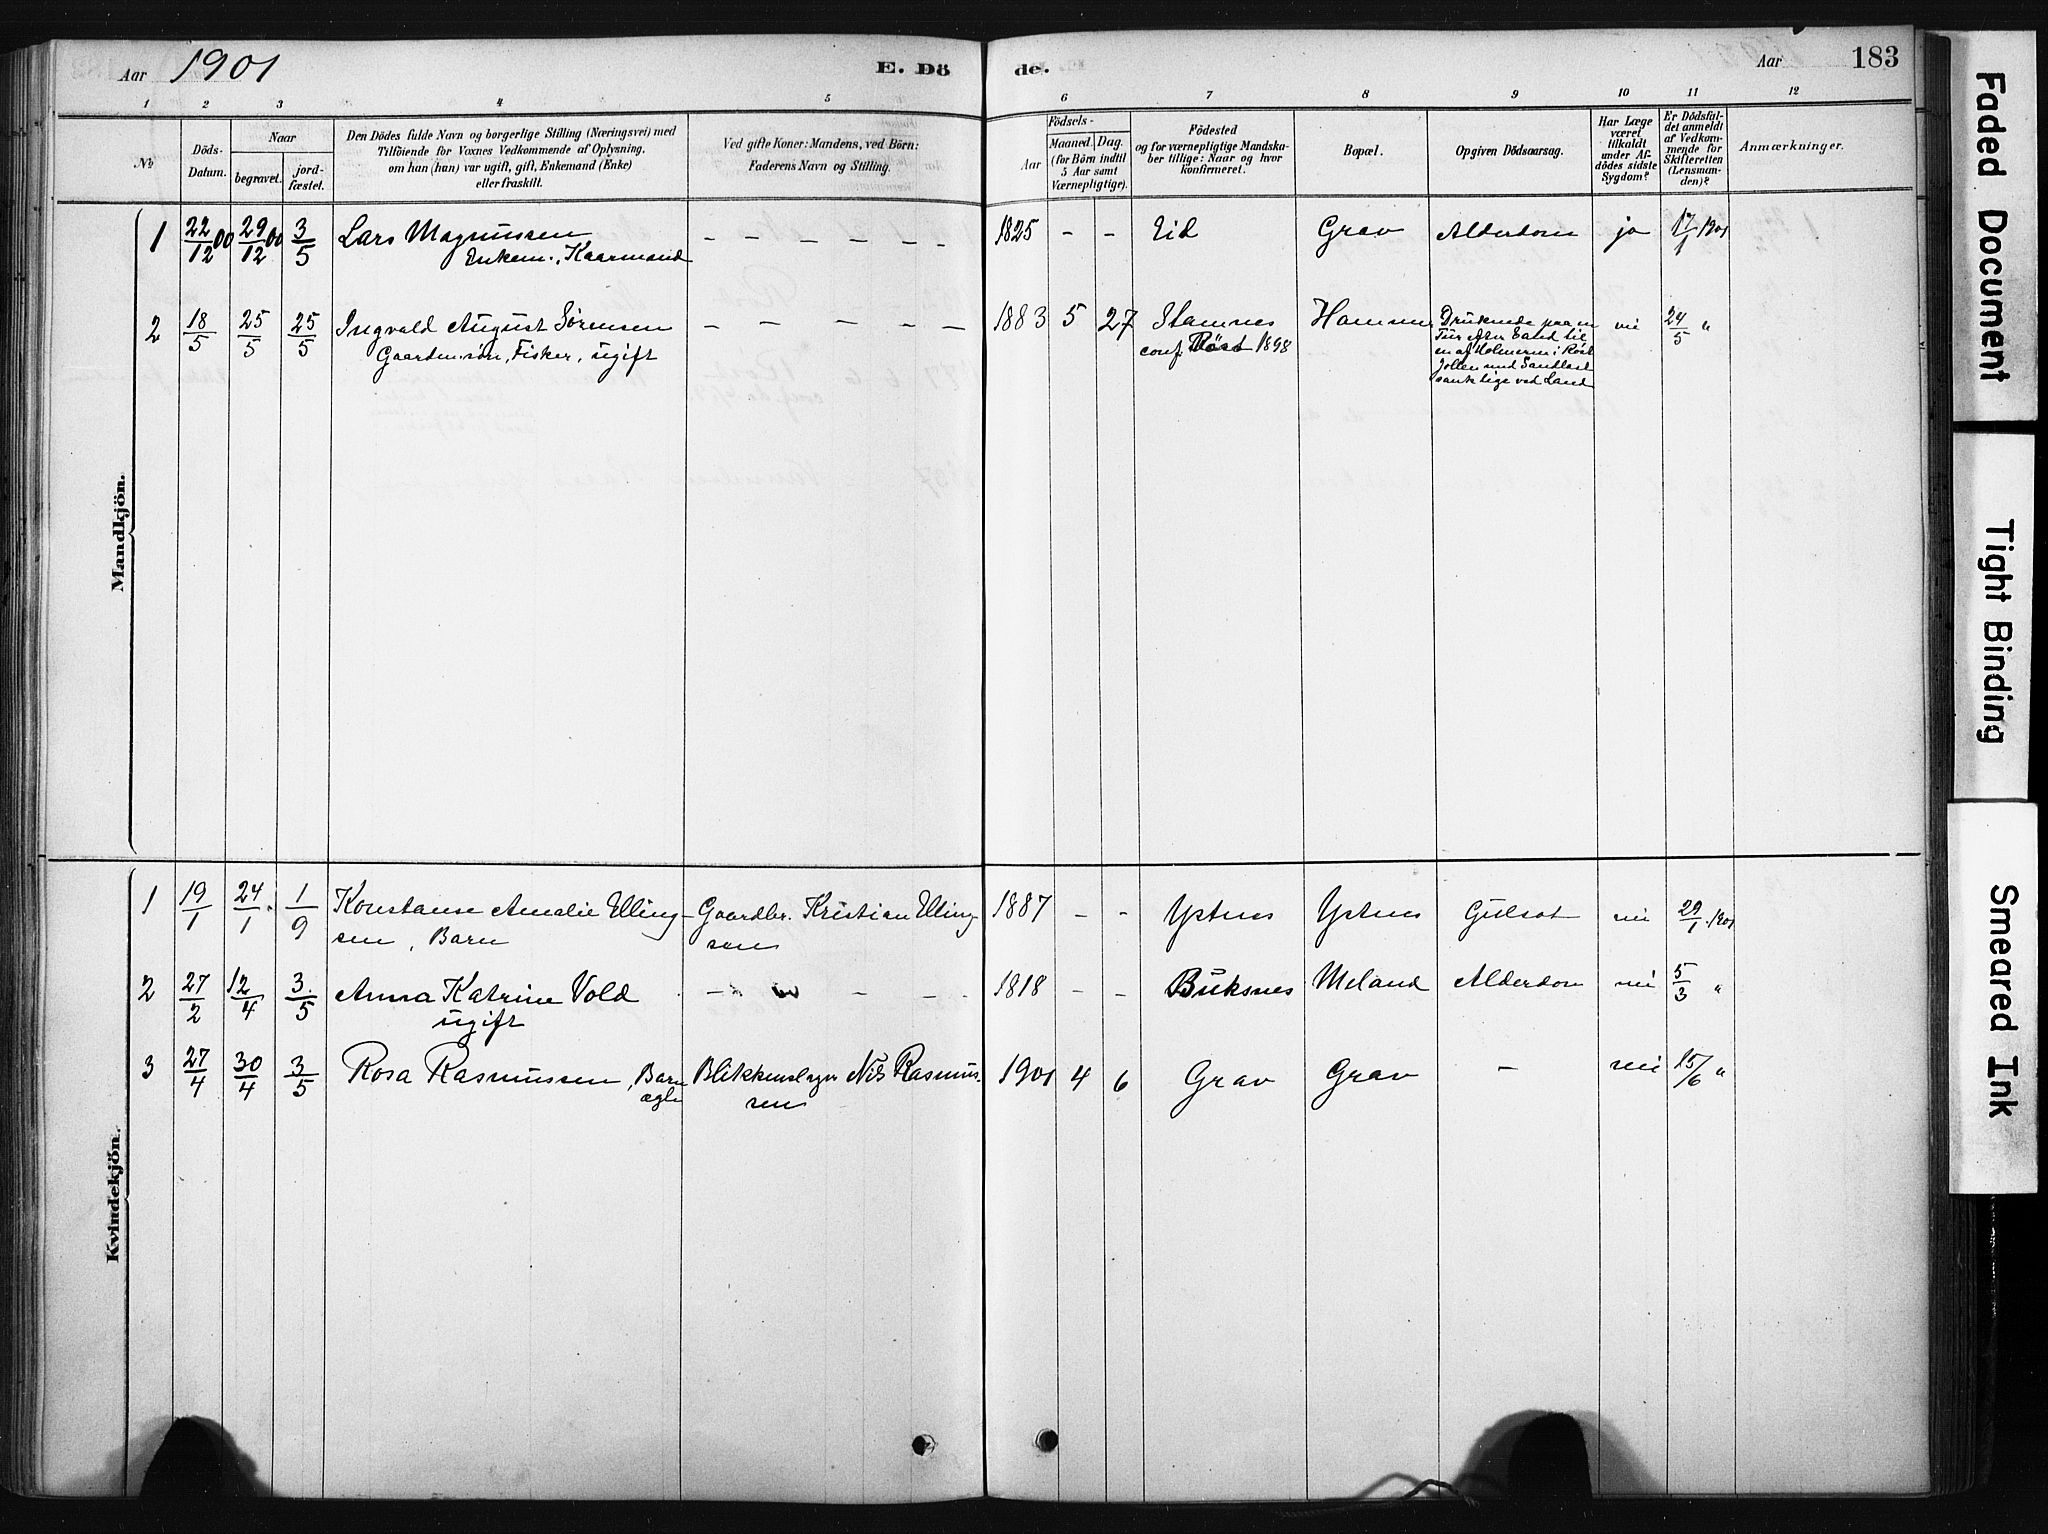 Aar 1901
E. Dö
de.
Aar
183
1 2 3 4 5 6 7 8 9 10 11 12
No
Döds-
Datum.
Naar
begravet.
jord-
fæstet.
Den Dödes fulde Navn og borgerlige Stilling (Næringsvei) med
Tilföiende for Voxnes Vedkommende af Oplysning.
om han (hun) var ugift, gift, Enkemand (Enke)
eller fraskilt.
Ved gifte Koner: Mandens, ved Börn:
Faderens Navn og Stilling.
Födsels-
Aar
Maaned.
Dag.
(for Börn indtil
5 Aar samt
Værnepligtige).
Födested
og for værnepligtige Mandska-
ber tillige: Naar og hvor
konfirmeret.
Bopæl.
Opgiven Dödsaarsag.
Har Læge
været
tilkaldt
under Af-
dödes sidste
Sygdom?
Er Dödsfal-
det anmeldt
af Vedkom-
mende for
Skifteretten
(Lensman-
den)?
Anmærkninger.
Mandkjön.
1 22/12 00 29/12 00 3/5 Lars Magnussen – – – – – – 1825 – – Eid Grav Alderdom ja 17/1 1901
Enkem., Kaarmand
2 18/5 25/5 25/5 Ingvald August Sörensen – – – – – 1883 5 27 Stamnes Hammer Druknede paa en nei 24/5 "
Gaardmsön, Fisker, ugift
conf. Röst 1898
Jollen med Sandlast
sank lige ved Land
Kvindekjön.
1 19/1 24/1 1/9 Konstanse Amalie Elling- Gaardbr. Kristian Elling- 1887 – – Ystnes Ystnes Gulsot nei 29/1 1901
sen, Barn sen
2 27/2 12/4 3/5 Anna Katrine Vold – – – – 1818 – – Buksnes Meland Alderdom nei 5/3 "
ugift
3 27/4 30/4 3/5 Rosa Rasmussen, Barn Blikkenslager Nils Rasmus- 1901 4 6 Grav Grav – nei 15/6 "
ægte sen
Faded Document
Tight Binding
Smeared Ink